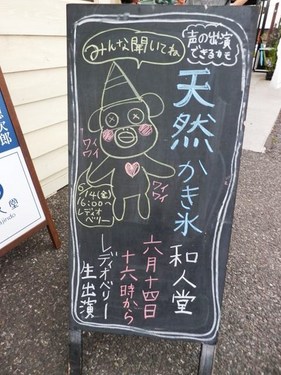 みんな聞いてね
声の出演
できるかも
天然かき氷
和人堂
六月十四日
十六時から
レディオベリー
生出演
ワイ
ワイ
ワイ
ワイ
6/14(金)
16:00〜
レディオ
ベリー
次郎